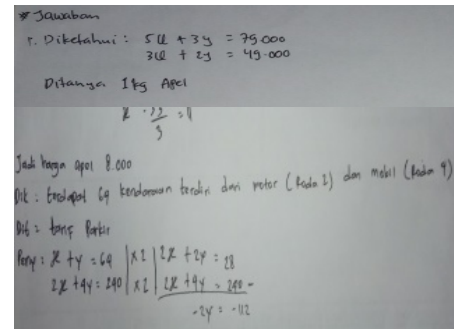 * Jawaban
1. Diketahui : 5x + 3y = 79.000
3x + 2y = 49.000
Ditanya 1 kg Apel
Jadi harga apel 8.000
Dik : terdapat 69 kendaraan terdiri dari motor (Roda 2) dan mobil (Roda 4)
Dit : tarif Parkir
Peny : x + y = 69 | x2 | 2x + 2y = 28
2x + 4y = 240 | x2 | 2x + 4y = 240 -
-2y = -112